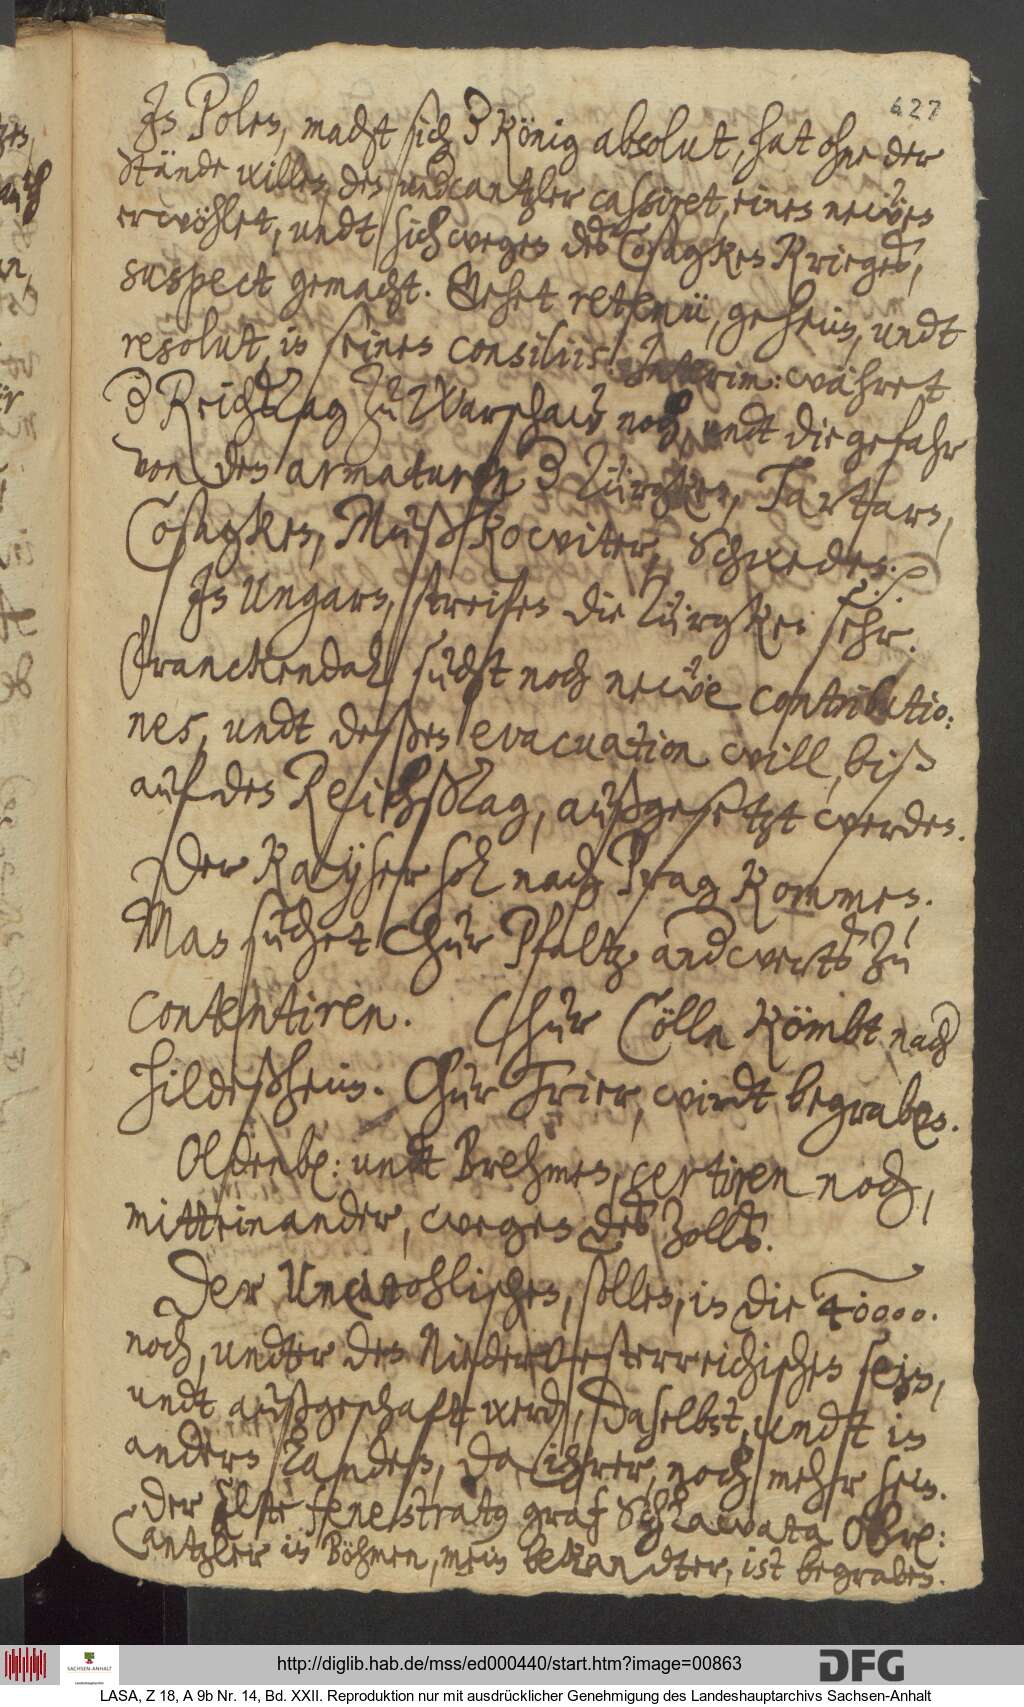 627
In Polen, macht sich d König absolut, hat ohne der
Stände willen, den undcantzler cassiret, einen neẅen
erwöhlet, undt sich wegen des Cosagken Krieges,
suspect gemacht. Gehet retenü, geheim, undt
resolut, in seinen consiliis. Interim: währet
d Reichßtag zu Warschaw noch, undt die gefahr
von den armaturen d Türgken, Tartarn,
Cosagken, Mußkowiter, Schweden. ⸫
In Ungarn, streifen die Türgken sehr.
Franckendahl sucht noch neẅe contributio:
nes, undt deßen evacuation will, biß
auf den Reichßtag, außgesetzt werden.
Der Kayser sol nach Prag kommen.
Man suchet Chur Pfaltz, andwerts zu
contentiren. Chur Cölln kömbt nach
Hildeßheim. Chur Trier, wirdt begraben.
Oldenb: undt Brehmen, certiren noch,
mitteinander, wegen des Zolls.
Der Uncatohlischen, sollen, in die 40000.
noch, undter den NiederOesterreichischen sein,
undt außgeschaft werden, Daselbst, undt in
andern Landen, da ihrer, noch mehr sein.
Der Elste fenestratus graf Schlawata Obr:
Cantzler in Böhmen, mein bekandter, ist begraben.
http://diglib.hab.de/mss/ed000440/start.htm?image=00863
DFG
SACHSEN-ANHALT
LASA, Z 18, A 9b Nr. 14, Bd. XXII. Reproduktion nur mit ausdrücklicher Genehmigung des Landeshauptarchivs Sachsen-Anhalt